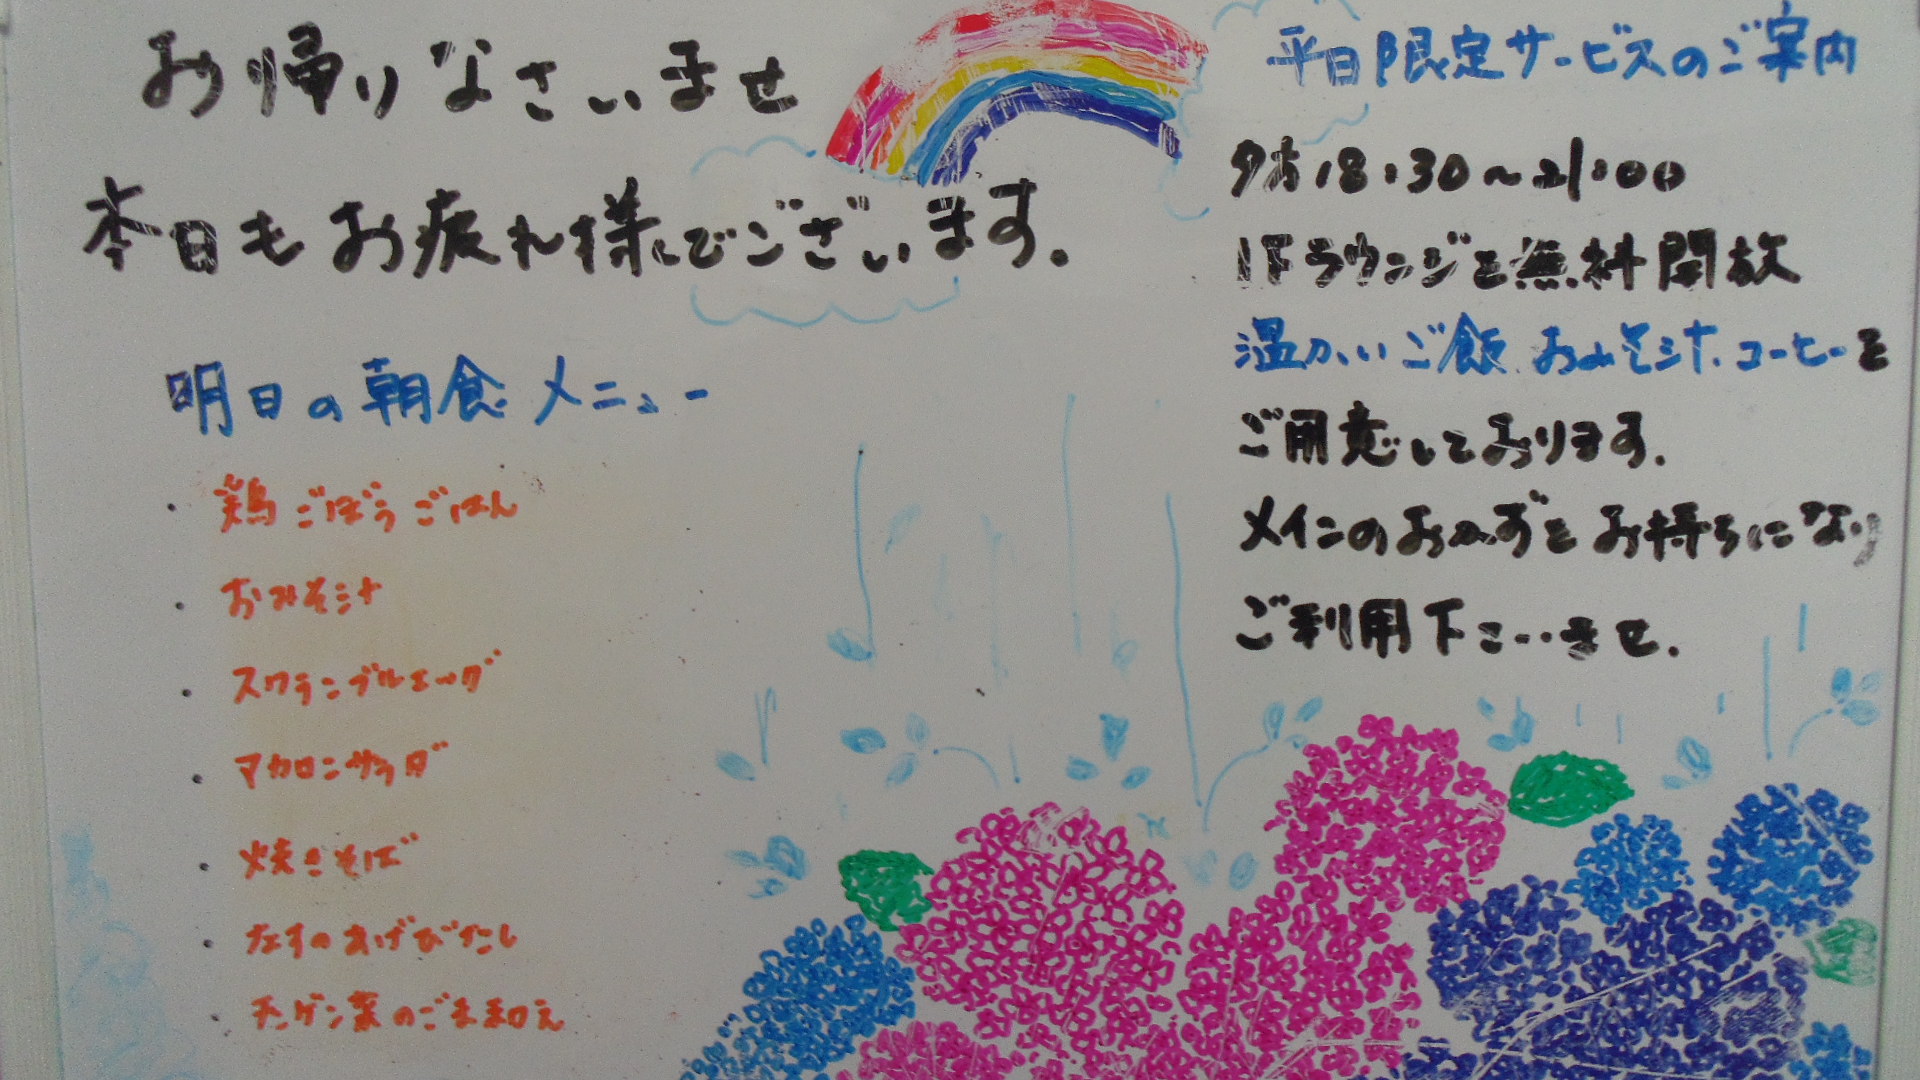 お帰りなさいませ
本日もお疲れ様でございます。
明日の朝食メニュー
・鶏ごぼうごはん
・おみそ汁
・スクランブルエッグ
・マカロニサラダ
・焼きそば
・なすのあげびたし
・チンゲン菜のごま和え
平日限定サービスのご案内
夕方18:30〜21:00
1Fラウンジを無料開放
温かいご飯、おみそ汁、コーヒーを
ご用意しております。
メインのおかずをお持ちになり
ご利用下さいませ。